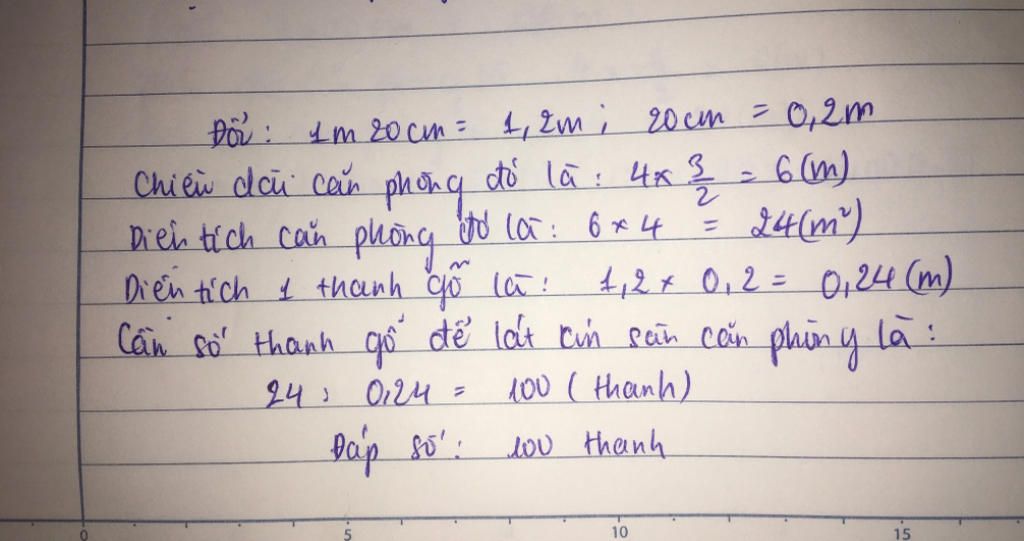 Đổi: 1m 20cm = 1,2m; 20cm = 0,2m
Chiều dài căn phòng đó là: 4 × 3/2 = 6(m)
Diện tích căn phòng đó là: 6 × 4 = 24(m²)
Diện tích 1 thanh gỗ là: 1,2 × 0,2 = 0,24 (m)
Cần số thanh gỗ để lát kín sàn căn phòng là:
24 : 0,24 = 100 (thanh)
Đáp số: 100 thanh
0 5 10 15